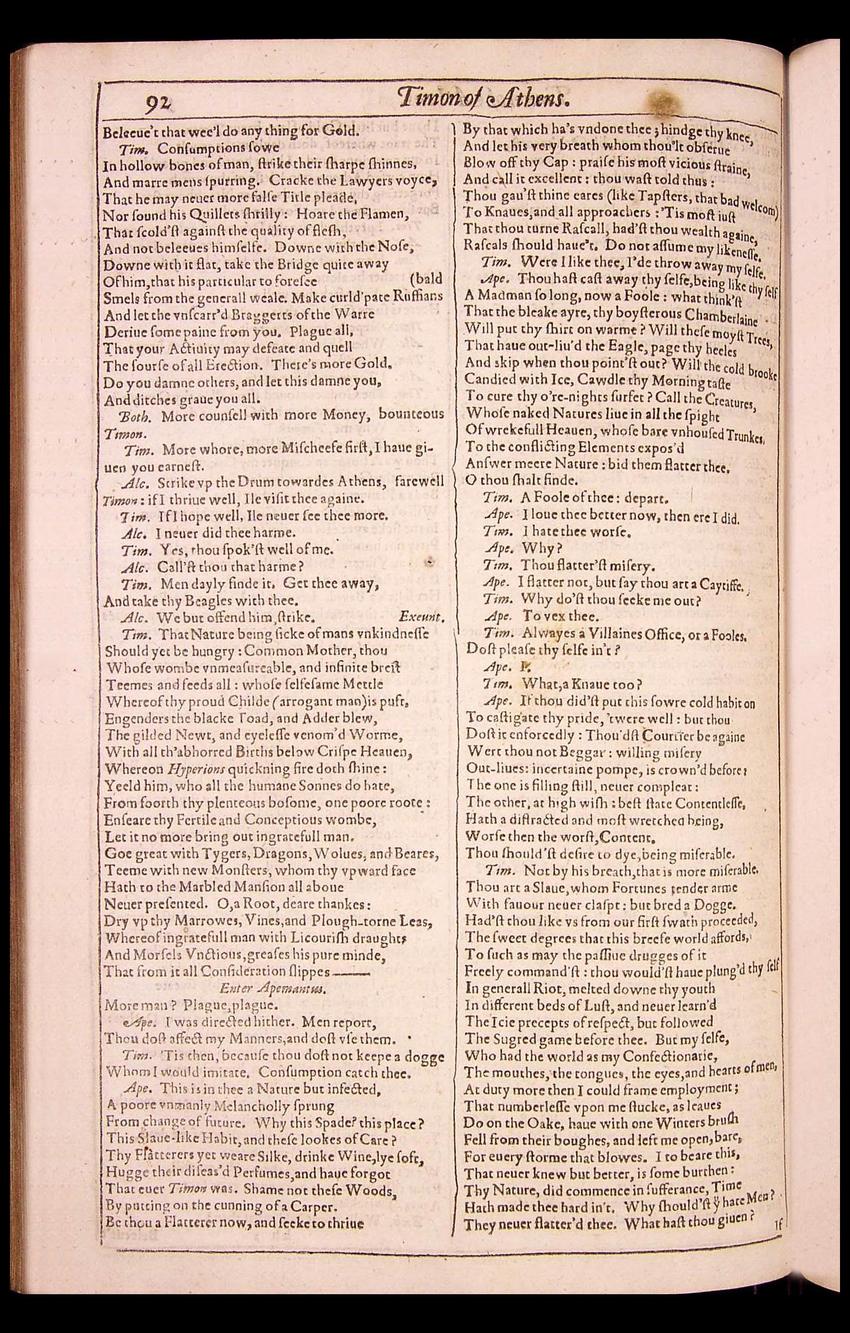 92
Timon of Athens.
Beleeue't that wee'l do any thing for Gold.
Tim. Consumptions sowe
In hollow bones of man, strike their sharpe shinnes,
And marre mens spurring. Cracke the Lawyers voyce,
That he may neuer more false Title pleade,
Nor sound his Quillets shrilly: Hoare the Flamen,
That scold'st against the quality of flesh,
And not beleeues himselfe. Downe with the Nose,
Downe with it flat, take the Bridge quite away
Of him, that his particular to foresee (bald
Smels from the generall weale. Make curld'pate Ruffians
And let the vnscarr'd Braggerts of the Warre
Deriue some paine from you. Plague all,
That your Actiuity may defeate and quell
The sourse of all Erection. There's more Gold.
Do you damne others, and let this damne you,
And ditches graue you all.
Both. More counsell with more Money, bounteous
Timon.
Tim. More whore, more Mischeefe first, I haue gi-
uen you earnest.
Alc. Strike vp the Drum towardes Athens, farewell
Timon: if I thriue well, Ile visit thee againe.
Tim. If I hope well, Ile neuer see thee more.
Alc. I neuer did thee harme.
Tim. Yes, thou spok'st well of me.
Alc. Call'st thou that harme?
Tim. Men dayly finde it. Get thee away,
And take thy Beagles with thee.
Alc. We but offend him, strike. Exeunt.
Tim. That Nature being sicke of mans vnkindnesse
Should yet be hungry: Common Mother, thou
Whose wombe vnmeasureable, and infinite brest
Teemes and feeds all: whose selfesame Mettle
Whereof thy proud Childe (arrogant man) is puft,
Engenders the blacke Toad, and Adder blew,
The gilded Newt, and eyelesse venom'd Worme,
With all th'abhorred Births below Crispe Heauen,
Whereon Hyperions quickning fire doth shine:
Yeeld him, who all the humane Sonnes do hate,
From foorth thy plenteous bosome, one poore roote:
Enseare thy Fertile and Conceptious wombe,
Let it no more bring out ingratefull man.
Goe great with Tygers, Dragons, Wolues, and Beares,
Teeme with new Monsters, whom thy vpward face
Hath to the Marbled Mansion all aboue
Neuer presented. O, a Root, deare thankes:
Dry vp thy Marrowes, Vines, and Plough-torne Leas,
Whereof ingratefull man with Licourish draughts
And Morsels Vnctious, greases his pure minde,
That from it all Consideration slippes——
Enter Apemantus.
More man? Plague, plague.
Ape. I was directed hither. Men report,
Thou dost affect my Manners, and dost vse them.
Tim. 'Tis then, because thou dost not keepe a dogge
Whom I would imitate. Consumption catch thee.
Ape. This is in thee a Nature but infected,
A poore vnmanly Melancholly sprung
From change of future. Why this Spade? this place?
This Slaue-like Habit, and these lookes of Care?
Thy Flatterers yet weare Silke, drinke Wine, lye soft,
Hugge their diseas'd Perfumes, and haue forgot
That euer Timon was. Shame not these Woods,
By putting on the cunning of a Carper.
Be thou a Flatterer now, and seeke to thriue
By that which ha's vndone thee; hindge thy knee,
And let his very breath whom thou'lt obserue
Blow off thy Cap: praise his most vicious straine,
And call it excellent: thou wast told thus:
Thou gau'st thine eares (like Tapsters, that bad welcom)
To Knaues, and all approachers: 'Tis most iust
That thou turne Rascall, had'st thou wealth againe,
Rascals should haue't. Do not assume my likenesse.
Tim. Were I like thee, I'de throw away my selfe.
Ape. Thou hast cast away thy selfe, being like thy self
A Madman so long, now a Foole: what think'st
That the bleake ayre, thy boysterous Chamberlaine
Will put thy shirt on warme? Will these moyst Trees,
That haue out-liu'd the Eagle, page thy heeles
And skip when thou point'st out? Will the cold brooke
Candied with Ice, Cawdle thy Morning taste
To cure thy o're-nights surfet? Call the Creatures,
Whose naked Natures liue in all the spight
Of wrekefull Heauen, whose bare vnhoused Trunkes,
To the conflicting Elements expos'd
Answer meere Nature: bid them flatter thee.
O thou shalt finde.
Tim. A Foole of thee: depart.
Ape. I loue thee better now, then ere I did.
Tim. I hate thee worse.
Ape. Why?
Tim. Thou flatter'st misery.
Ape. I flatter not, but say thou art a Caytiffe.
Tim. Why do'st thou seeke me out?
Ape. To vex thee.
Tim. Alwayes a Villaines Office, or a Fooles.
Dost please thy selfe in't?
Ape. I.
Tim. What, a Knaue too?
Ape. If thou did'st put this sowre cold habit on
To castigate thy pride, 'twere well: but thou
Dost it enforcedly: Thou'dst Courtier be againe
Wert thou not Beggar: willing misery
Out-liues: incertaine pompe, is crown'd before:
The one is filling still, neuer compleat:
The other, at high wish: best state Contentlesse,
Hath a distracted and most wretched being,
Worse then the worst, Content.
Thou should'st desire to dye, being miserable.
Tim. Not by his breath, that is more miserable.
Thou art a Slaue, whom Fortunes tender arme
With fauour neuer claspt: but bred a Dogge.
Had'st thou like vs from our first swath proceeded,
The sweet degrees that this breefe world affords,
To such as may the passiue drugges of it
Freely command'st: thou would'st haue plung'd thy self
In generall Riot, melted downe thy youth
In different beds of Lust, and neuer learn'd
The Icie precepts of respect, but followed
The Sugred game before thee. But my selfe,
Who had the world as my Confectionarie,
The mouthes, the tongues, the eyes, and hearts of men,
At duty more then I could frame employment;
That numberlesse vpon me stucke, as leaues
Do on the Oake, haue with one Winters brush
Fell from their boughes, and left me open, bare,
For euery storme that blowes. I to beare this,
That neuer knew but better, is some burthen:
Thy Nature, did commence in sufferance, Time
Hath made thee hard in't. Why should'st ẙ hate Men?
They neuer flatter'd thee. What hast thou giuen?
If